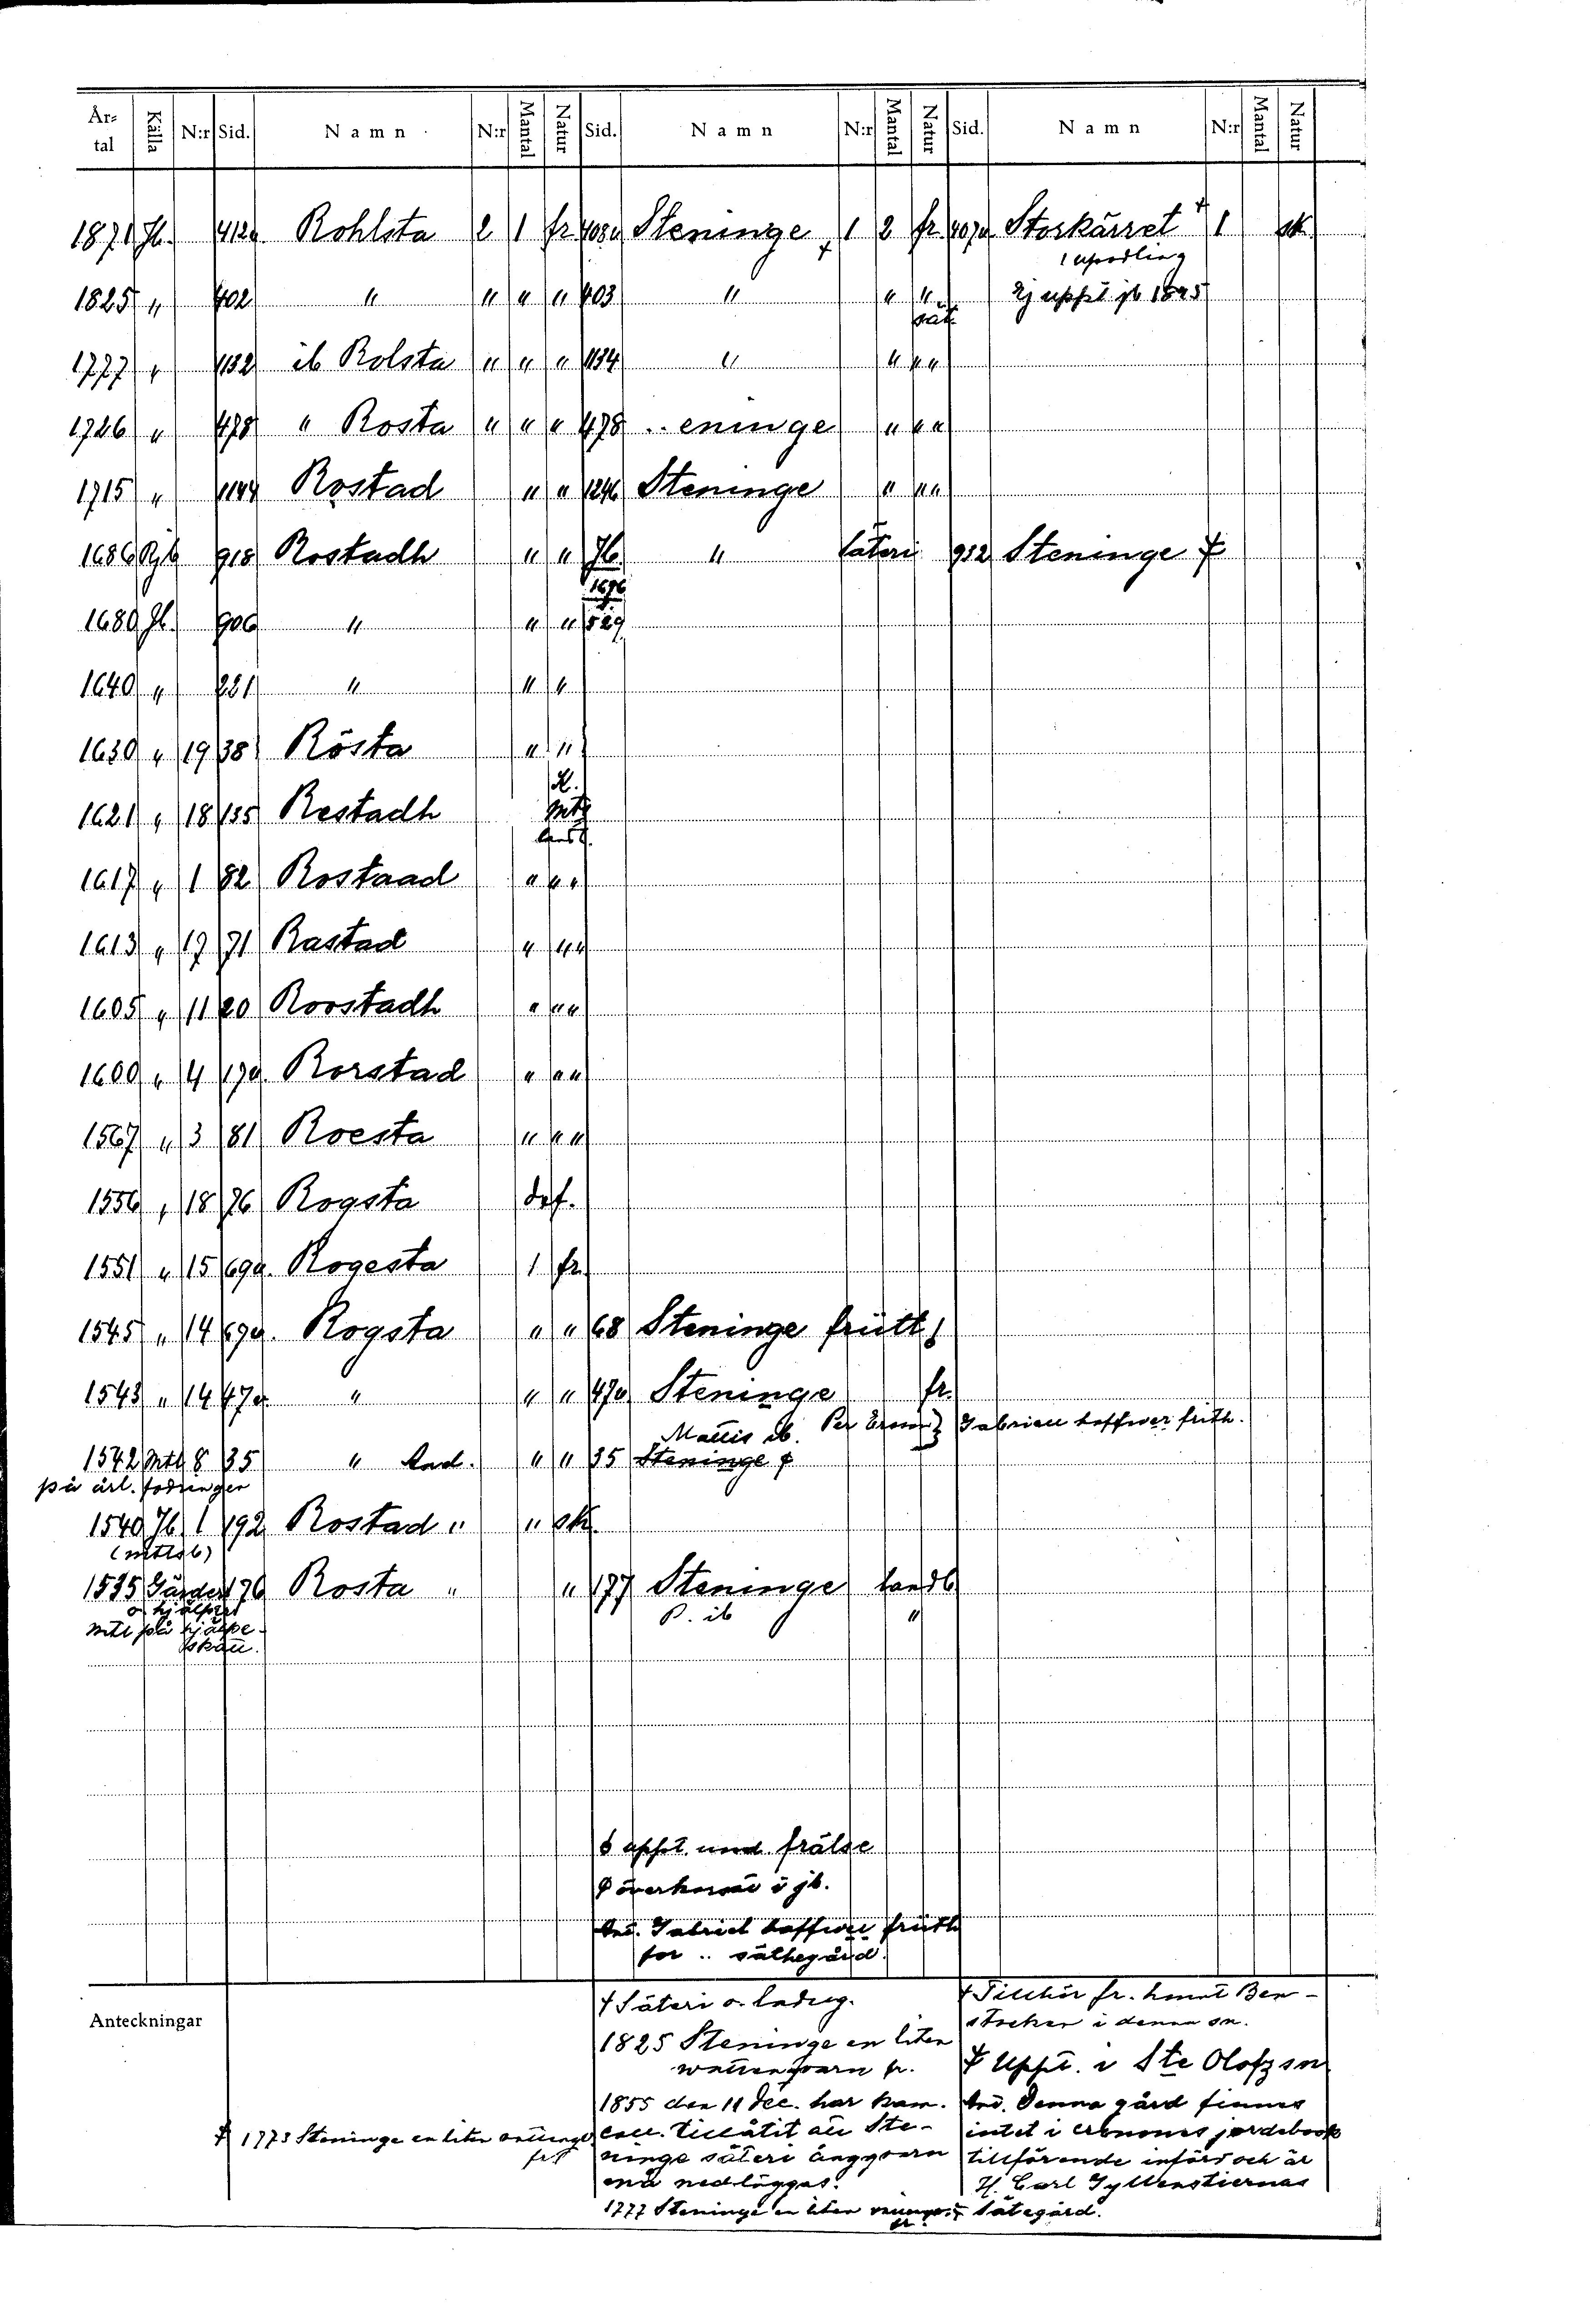 År-tal Källa N:r Sid. Namn N:r Mantal Natur Sid. Namn N:r Mantal Natur Sid. Namn N:r Mantal Natur
1871 Jb. 412a Rohlsta 2 1 fr 408a Steninge + 1 2 fr. 407a Storkärret + 1 sk
1 upodling
1825 " 402 " " " " 403 " " " Ej uppt jb 1825
sät.
1777 " 1132 ib Rolsta " " " 1134 " " " "
1726 " 478 " Rosta " " " 478 ..eninge " " "
1715 " 1144 Rostad " " 1246 Steninge " " "
1686 Rjb 918 Rostadh " " Jb. " säteri 932 Steninge ‡
1696
1680 Jb. 906 " " " 529
1640 " 281 " " "
1630 " 19 38 Rösta " "
1621 " 18 135 Restadh K. Mtz
1617 " 1 82 Rostaad " " "
1613 " 17 71 Rastad " " "
1605 " 11 20 Roostadh " " "
1600 " 4 17a. Rorstad " " "
1567 " 3 81 Roesta " " "
1556 " 18 76 Rogsta def.
1551 " 15 69a. Rogesta 1 fr.
1545 " 14 69a. Rogsta " " 68 Steninge friitt
1543 " 14 47a " " " 47a Steninge fr.
Mattis ib. Per
1542 Mtl 8 35 " And. " " 35 Steninge
på årl. fodringer
1540 Jb 1 192 Rostad " " sk.
(mtlsb)
1535 Gärder 176 Rosta " " 177 Steninge landb
o. hjälpst P. ib "
mtl på hjälpe-
skatt.
uppt. und. frälse
överkorsat i jb.
And. Gabriel haffwer friith
for .. säthegård.
Anteckningar
+ Säteri o. ladug.
1825 Steninge en liten
wattenqvarn fr.
1855 den 11 Dec. har kam.
coll. tillåtit att Ste-
ninge säteri ängqvarn
må nedläggas.
1777 Steninge en liten
fr.
‡ 1773 Steninge en liten
frs
+ Tillhör fr. hemt Ben-
stocken i denna sn.
‡ Uppt. i Ste Olofz sn
And. Denna gård finnes
intet i Cronones jordebook
tillförende införd och är
H. Carl Gyllenstiernas
Sätegård.